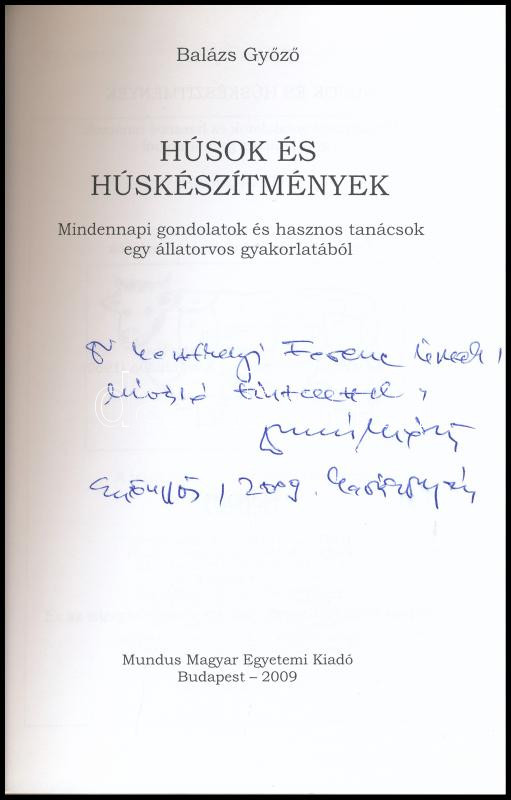 Balázs Győző
HÚSOK ÉS
HÚSKÉSZÍTMÉNYEK
Mindennapi gondolatok és hasznos tanácsok
egy állatorvos gyakorlatából
Dr Keszthelyi Ferenc Úrnak!
Kiváló tisztelettel,
Gyöngyös, 2009. Karácsonyán
Mundus Magyar Egyetemi Kiadó
Budapest – 2009